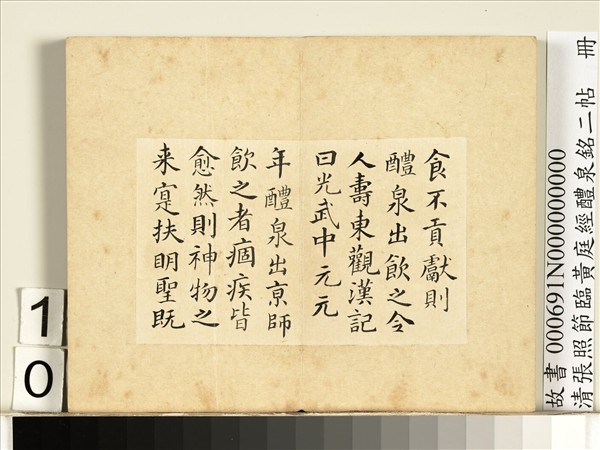 食不貢獻則
醴泉出飲之令
人壽東觀漢記
曰光武中元元
年醴泉出京師
飲之者痼疾皆
愈然則神物之
来寔扶明聖既
故書 000691N000000000
清張照節臨黃庭經醴泉銘二帖 冊
10